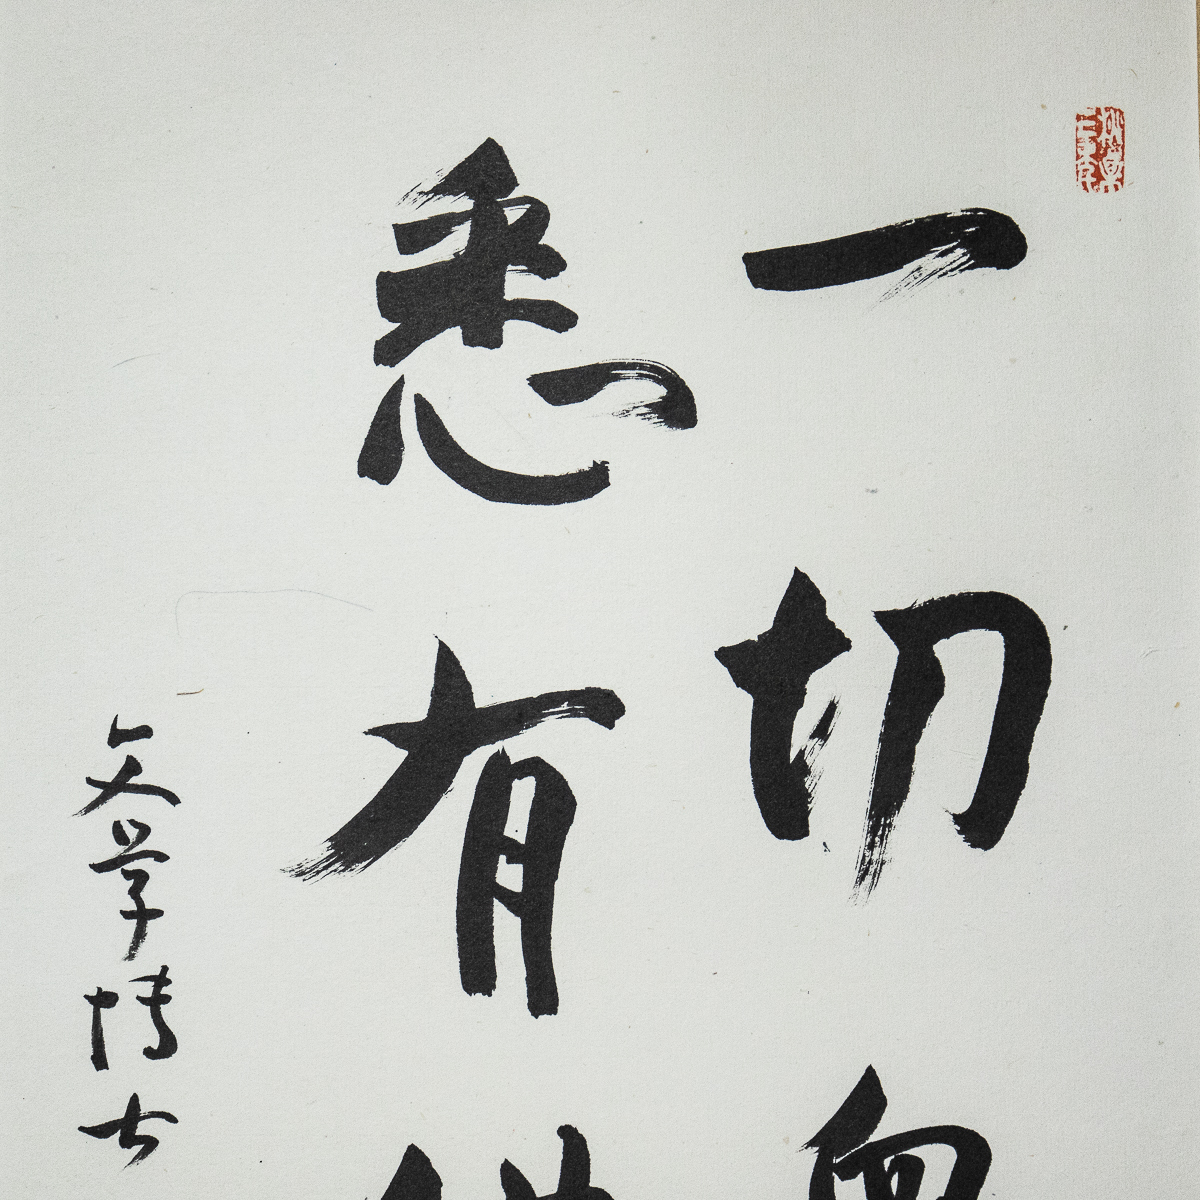 一切
悉有
文学博士